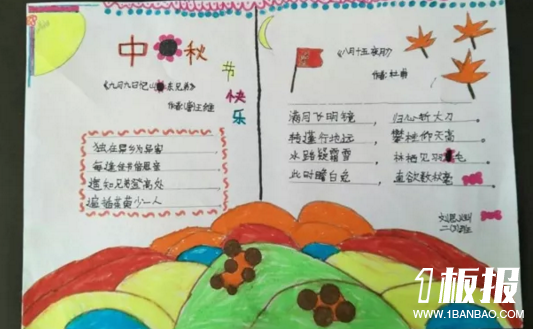 中秋
节快乐
《九月九日忆山东兄弟》
作者:唐王维
独在异乡为异客
每逢佳节倍思亲
遥知兄弟登高处
遍插茱萸少一人
《八月十五夜月》
作者:杜甫
满月飞明镜, 归心折大刀.
转蓬行地远, 攀桂仰天高.
水路疑霜雪, 林栖见羽毛.
此时瞻白兔, 直欲数秋毫
1板报
WWW.1BANBAO.COM